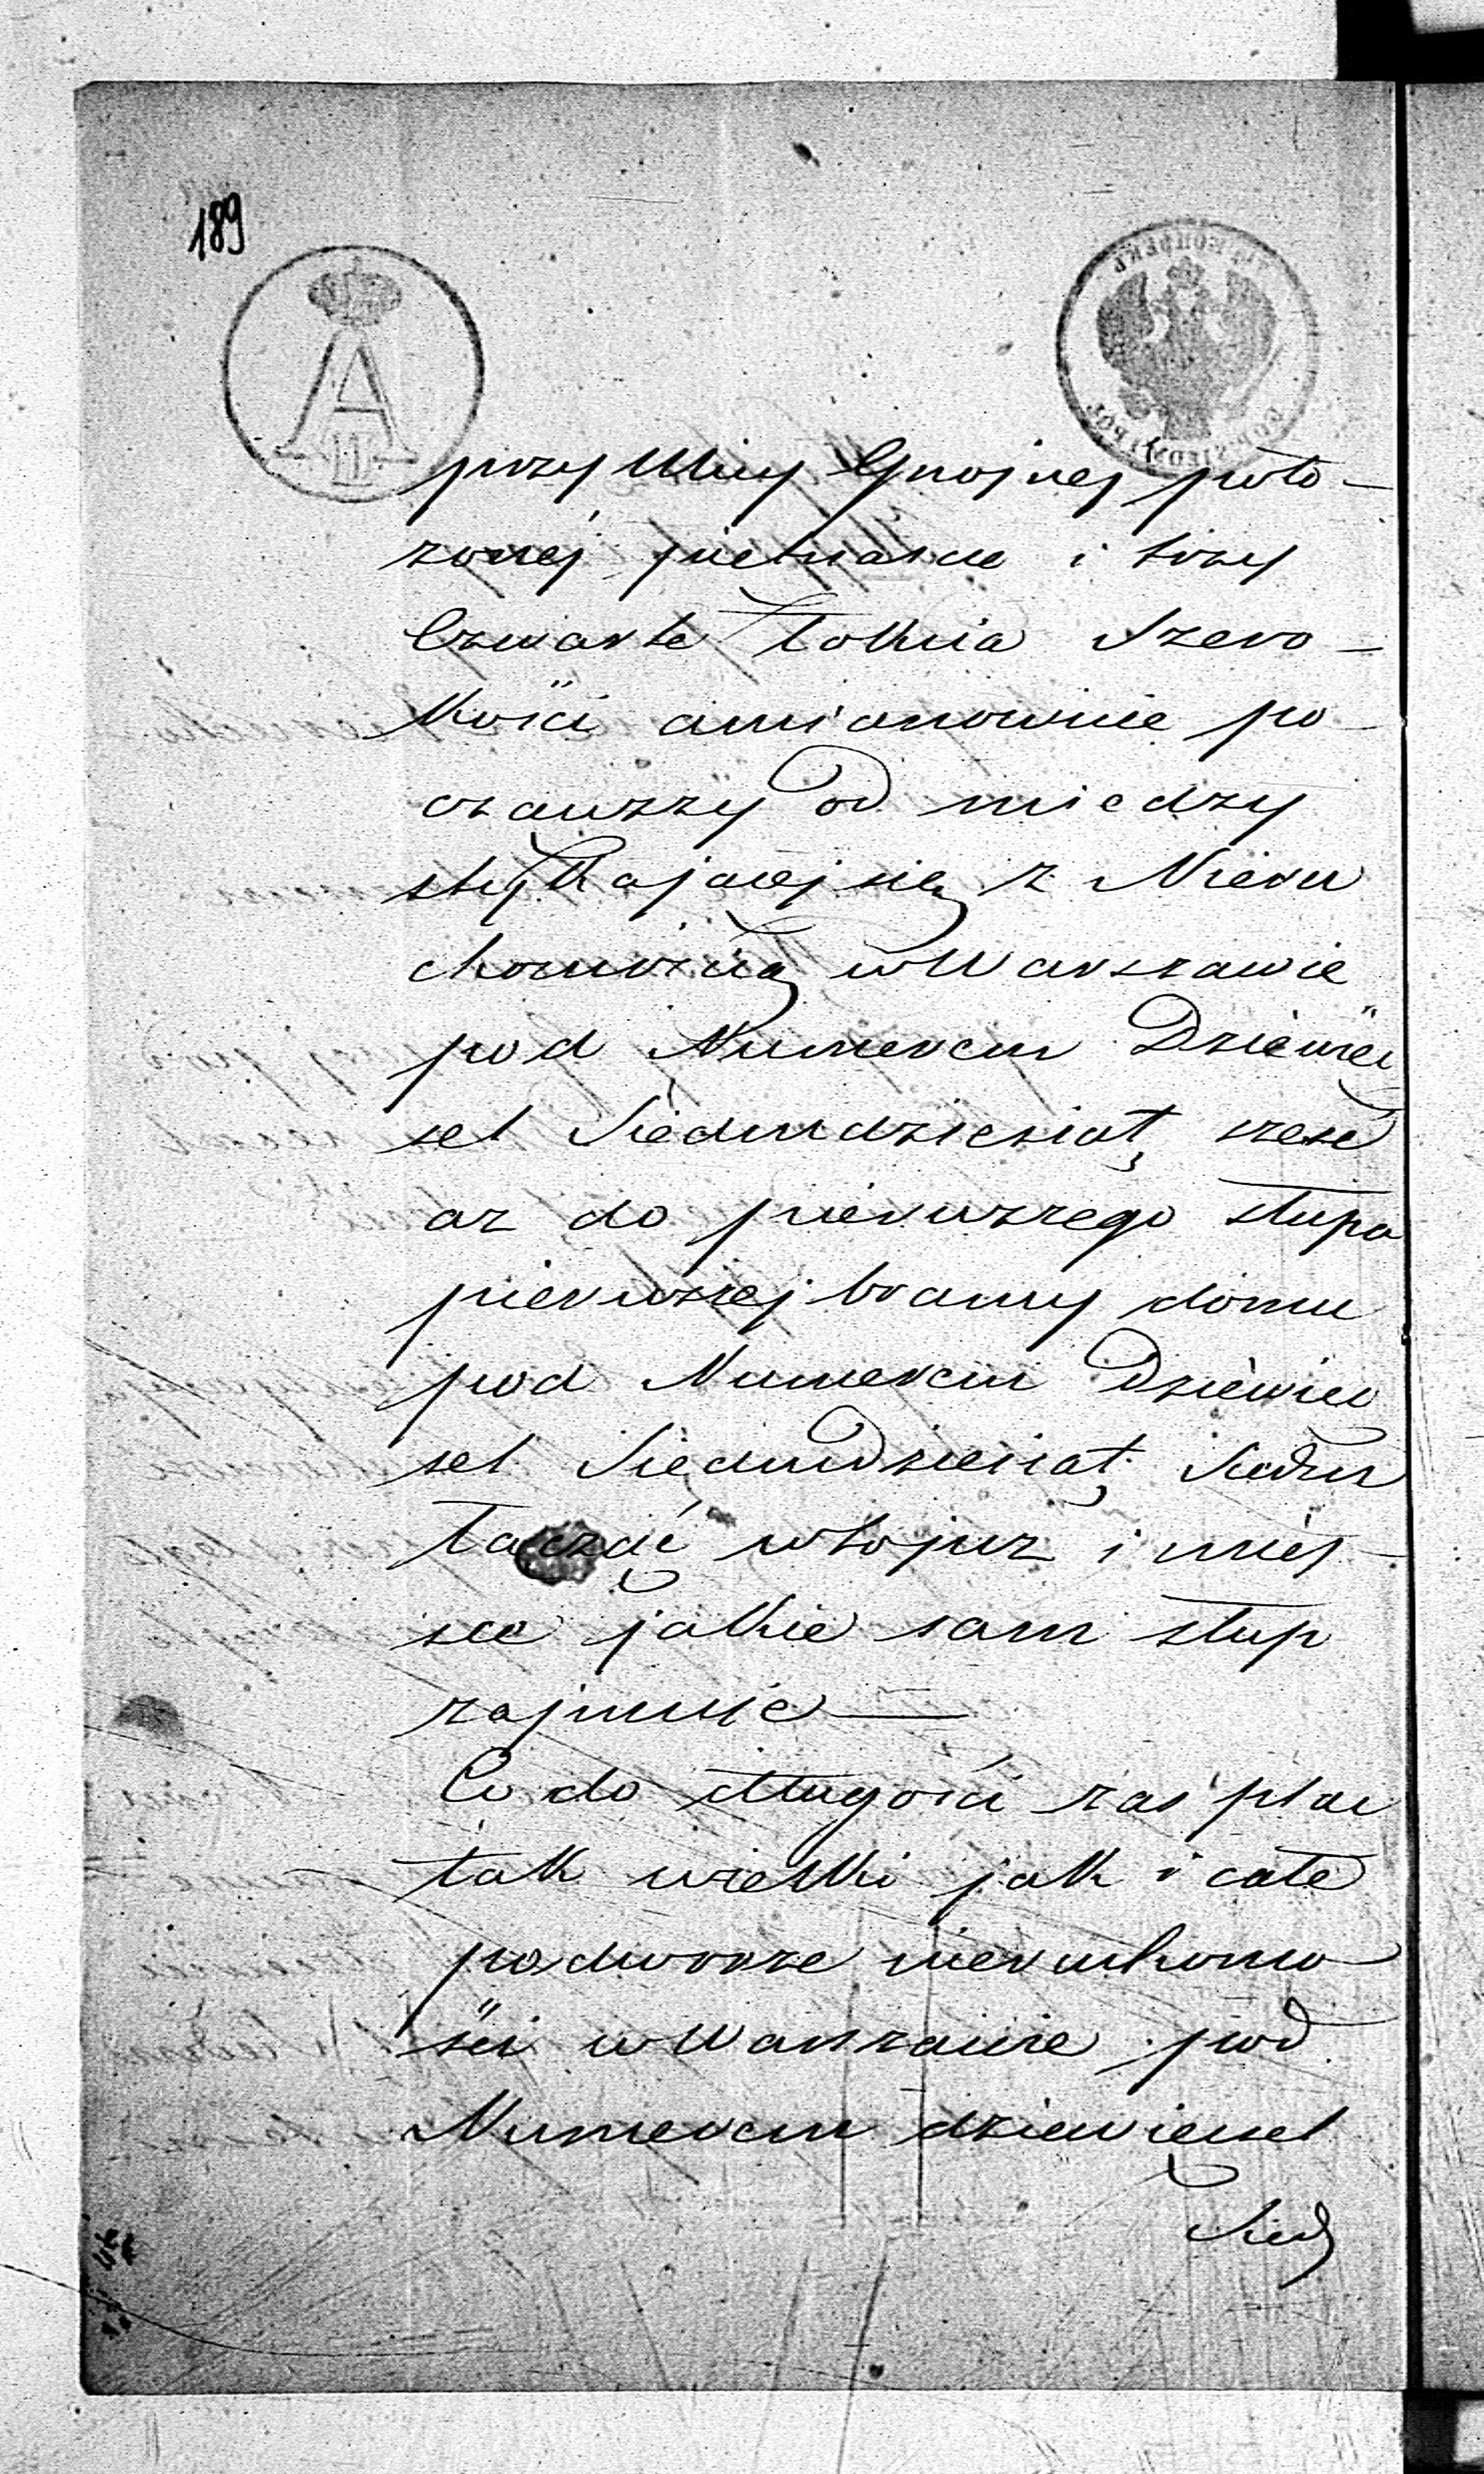 189
A
II
przy Ulicy Gnojnej poło-
zonej pietnascie i trzy
Czwarte Łokcia Szero-
kości amianowicie po-
czawszy od miedzy
stykajacej się z Nieru
chomością w Warszawie
pod Numerem Dziewięć
set Siedmdziesiąt szesć
az do pierwszego słupa
pierwszej bramy domu
pod Numerem Dziewięć
set Siedmdziesiąt Siedm
łacząc w to juz i miej-
sce jakie sam słup
zajmuie
Co do długości zaś plac
tak wielki jak i całe
podworze nieruchomo
ści w Warszawie pod
Numerem dziewięcset
Sied